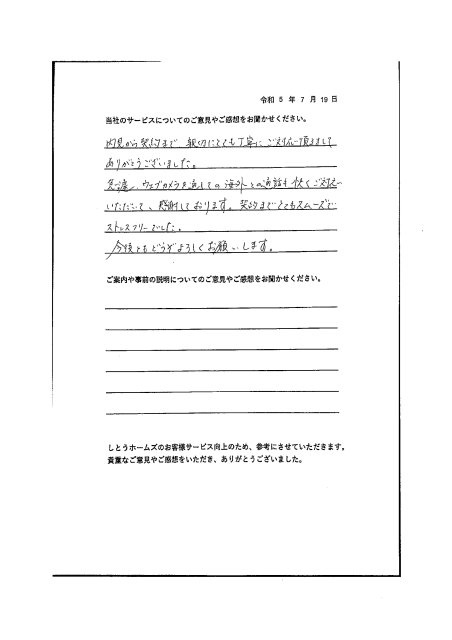 令和 5 年 7 月 19 日
当社のサービスについてのご意見やご感想をお聞かせください。
内見から契約まで、親切にとても丁寧にご対応頂きまして
ありがとうございました。
急遽、ウェブカメラを通しての海外との通話も快くご対応
いただいて、感謝しております。契約までとてもスムーズで
ストレスフリーでした。
今後ともどうぞよろしくお願いします。
ご案内や事前の説明についてのご意見やご感想をお聞かせください。
しとうホームズのお客様サービス向上のため、参考にさせていただきます。
貴重なご意見やご感想をいただき、ありがとうございました。